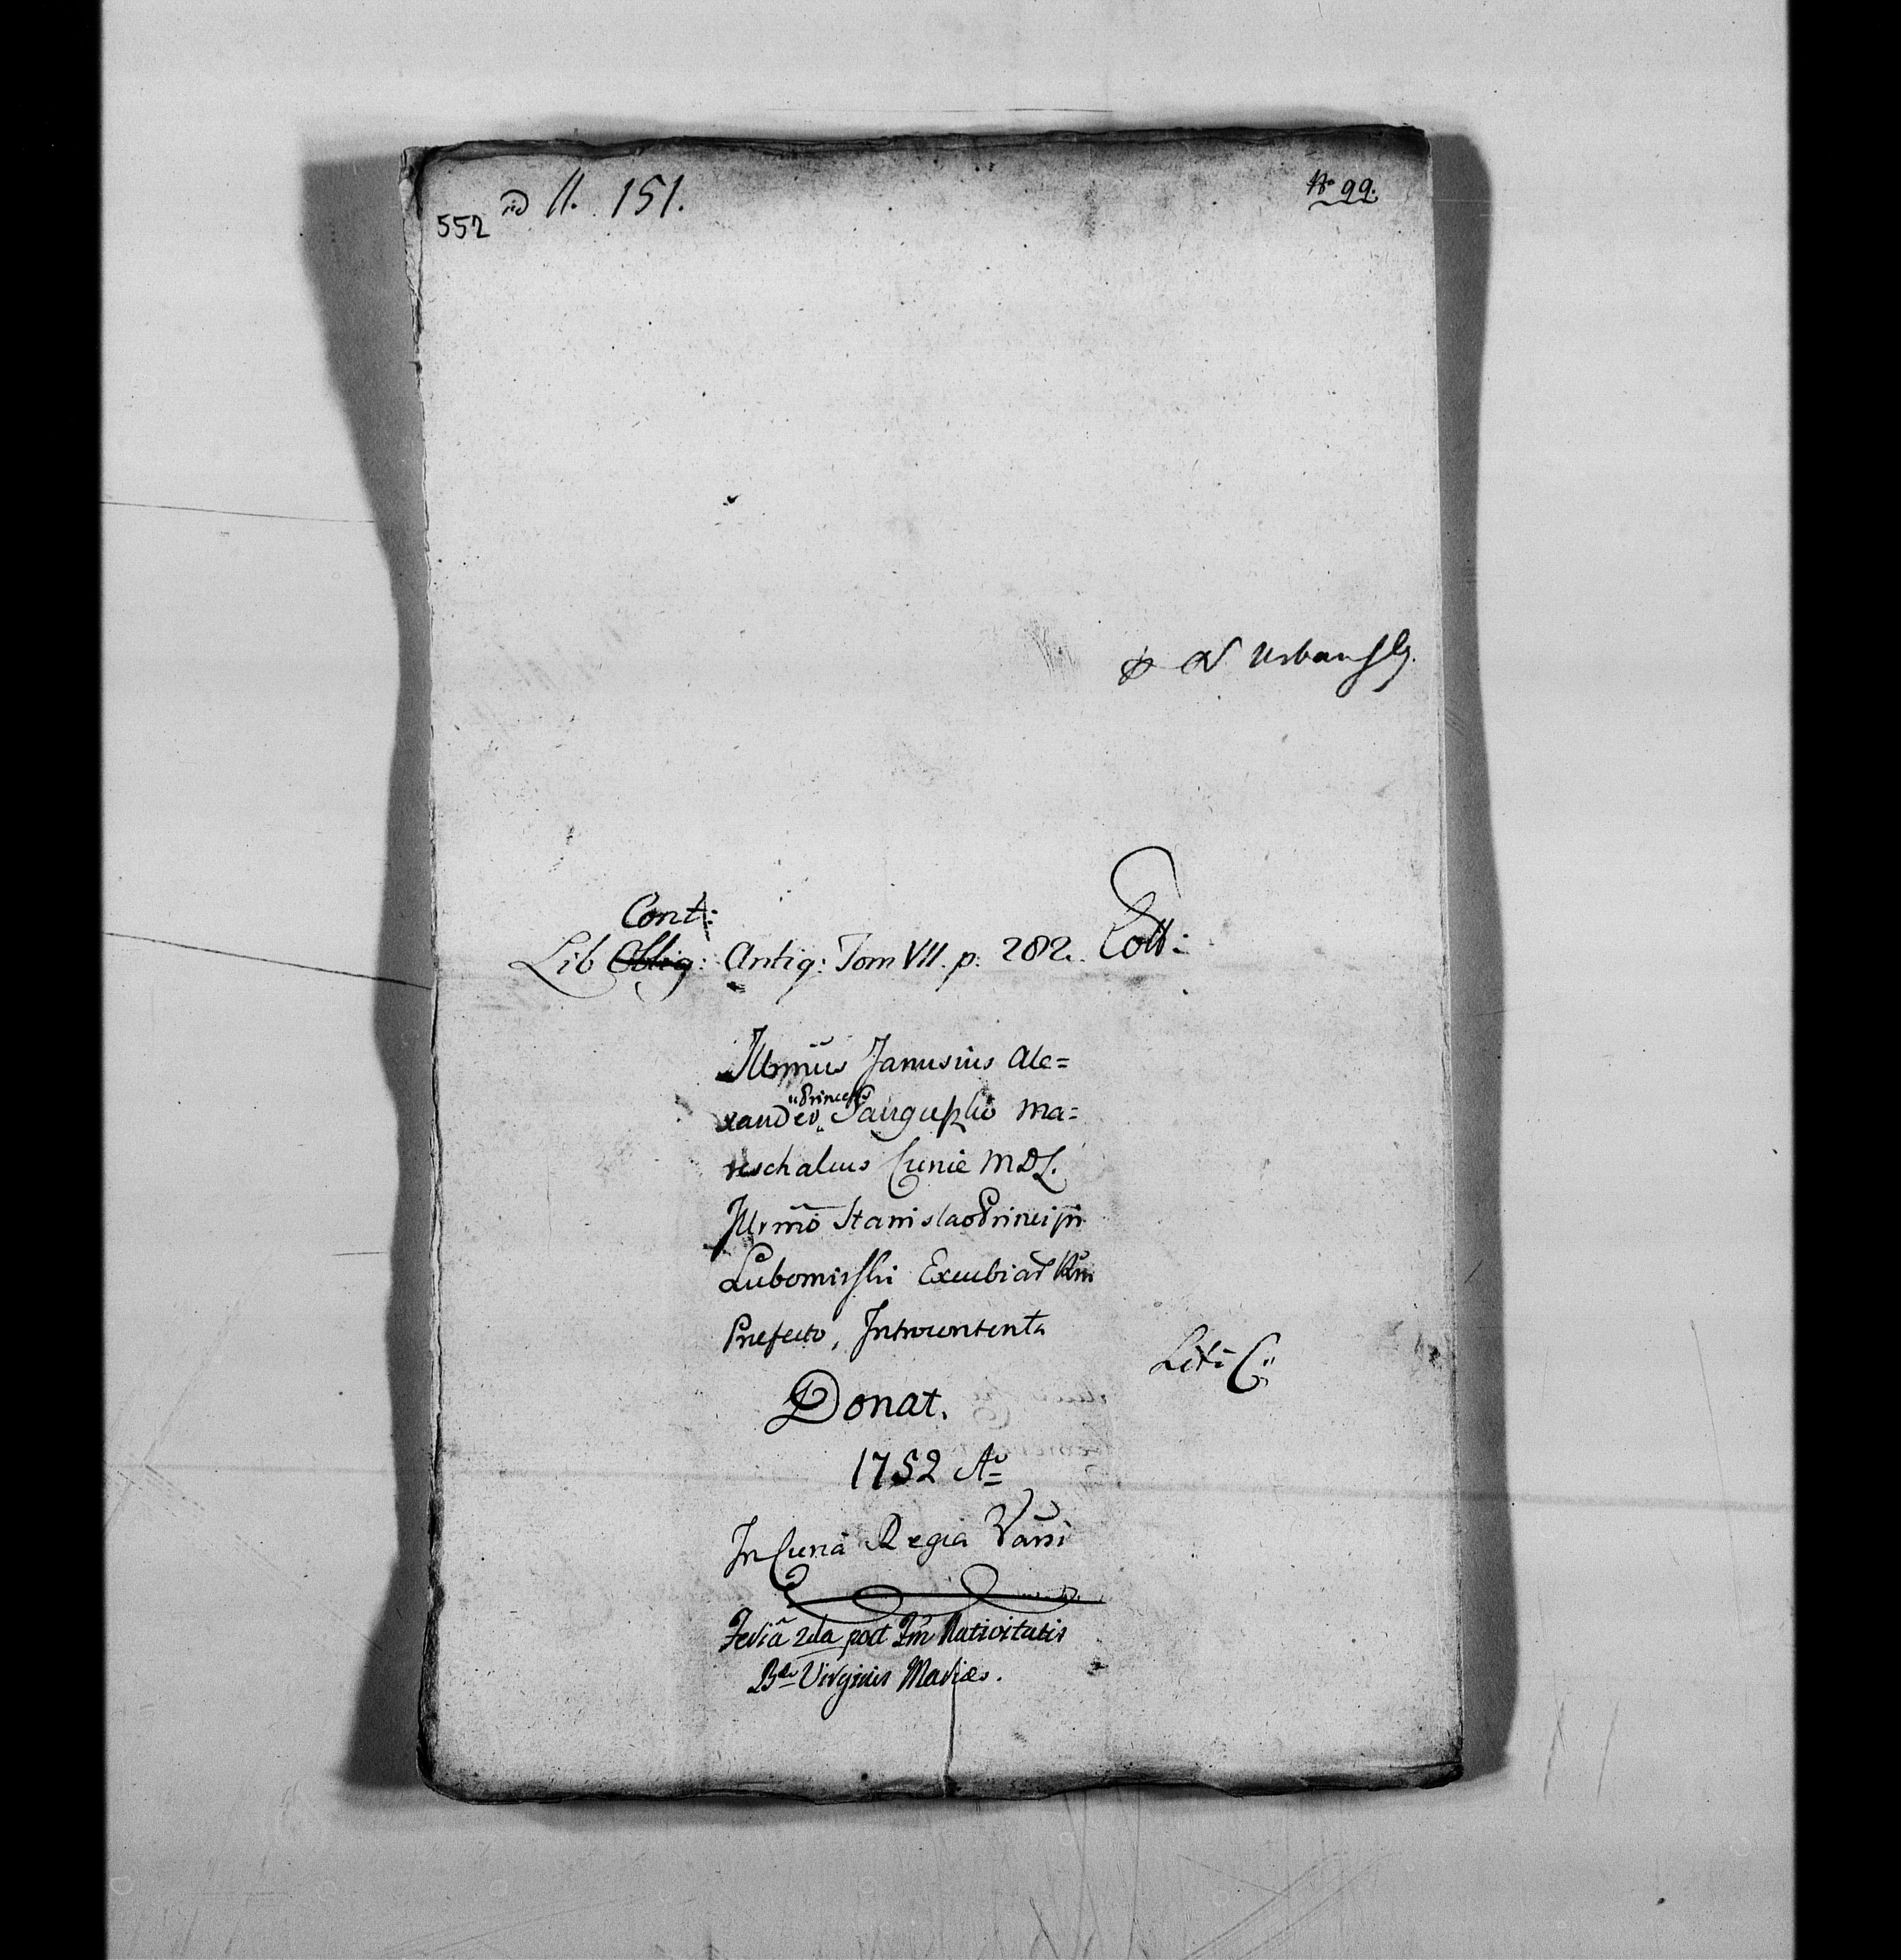 552 ad N. 151.
No 99.
Urbański
Cont:
Lib Oblig: Antiq: Tom VII. p. 282. Coll:
Illrmus Janusius Ale=
xander Princeps Sanguszko Ma=
reschalcus Curiæ MDL.
Illrmo Stanislao Principi
Lubomirski Excubiar Rni
Præfecto, Introcontenta
Litt C:
Donat.
1752 Ao
In Curia Regia Varsi
Feria 2da post Fm Nativitatis
Bae Virginis Mariæ.